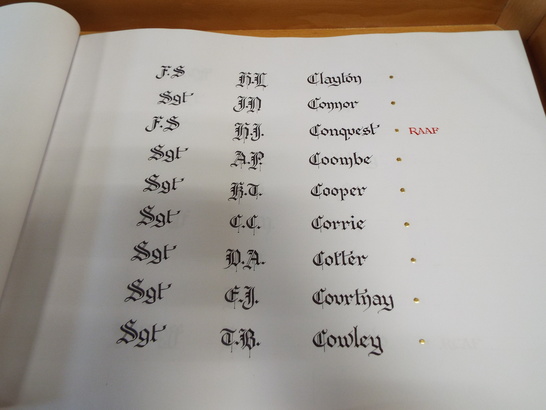 F.S H.L Clayton
Sgt J.N Connor
F.S H.J. Conquest RAAF
Sgt A.P Coombe
Sgt H.T. Cooper
Sgt C.C. Corrie
Sgt D.A. Cotter
Sgt E.J. Courtnay
Sgt T.B. Cowley